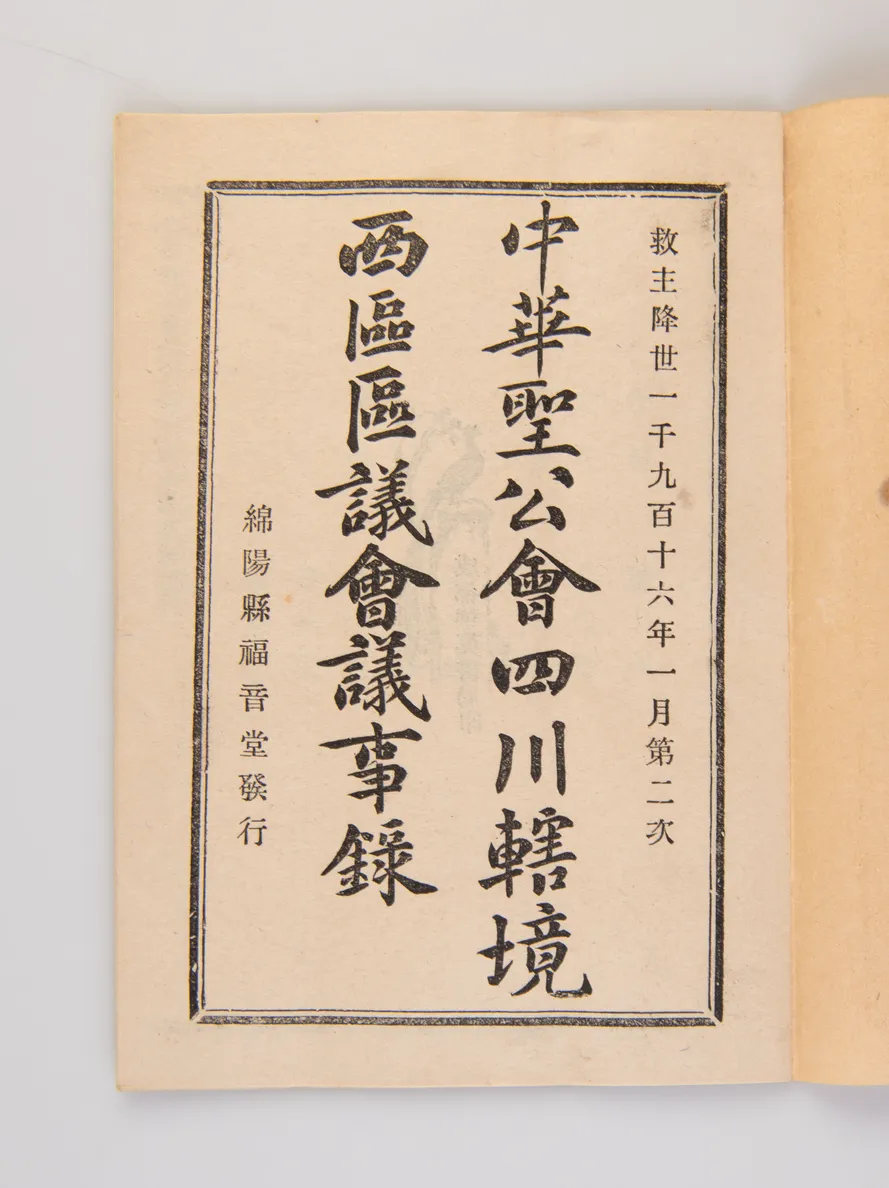 救主降世一千九百十六年一月第二次
中華聖公會四川轄境
西區區議會議事錄
綿陽縣福音堂發行